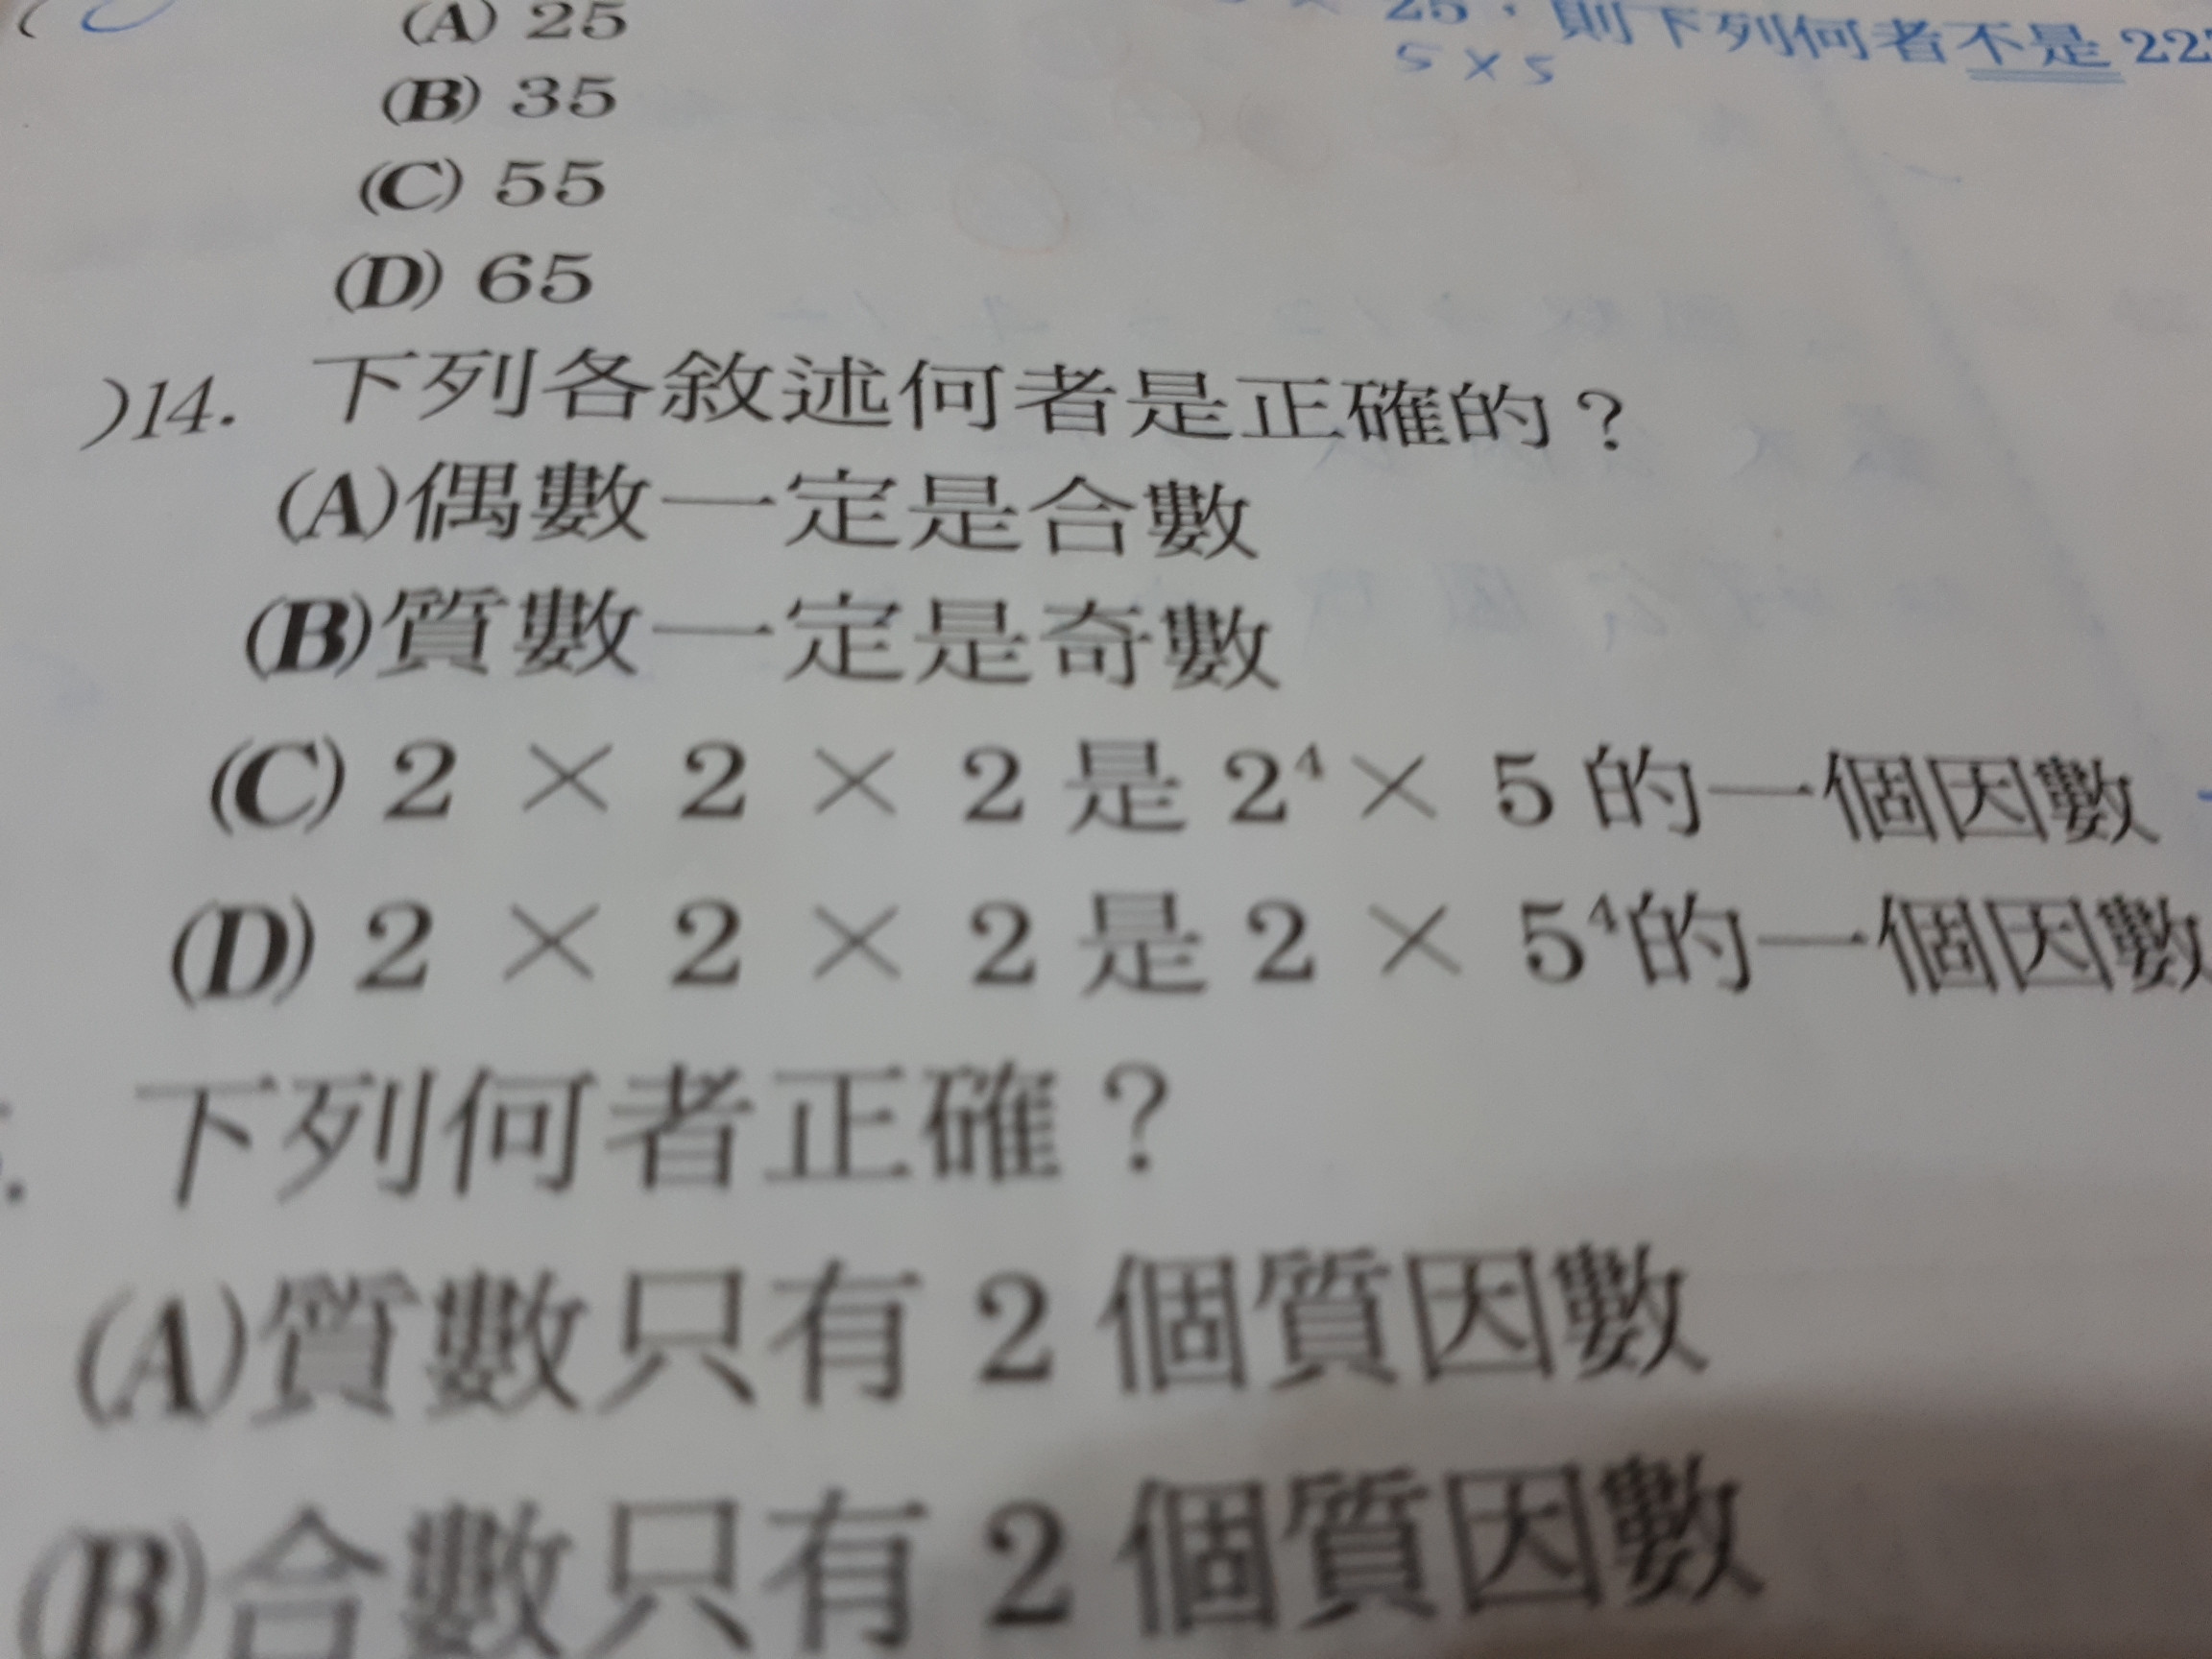 25，則下列何者不是 22
5×5
(A) 25
(B) 35
(C) 55
(D) 65
)14. 下列各敘述何者是正確的？
(A)偶數一定是合數
(B)質數一定是奇數
(C) 2 × 2 × 2 是 2⁴ × 5 的一個因數
(D) 2 × 2 × 2 是 2 × 5⁴的一個因數
下列何者正確？
(A)質數只有 2 個質因數
(B)合數只有 2 個質因數